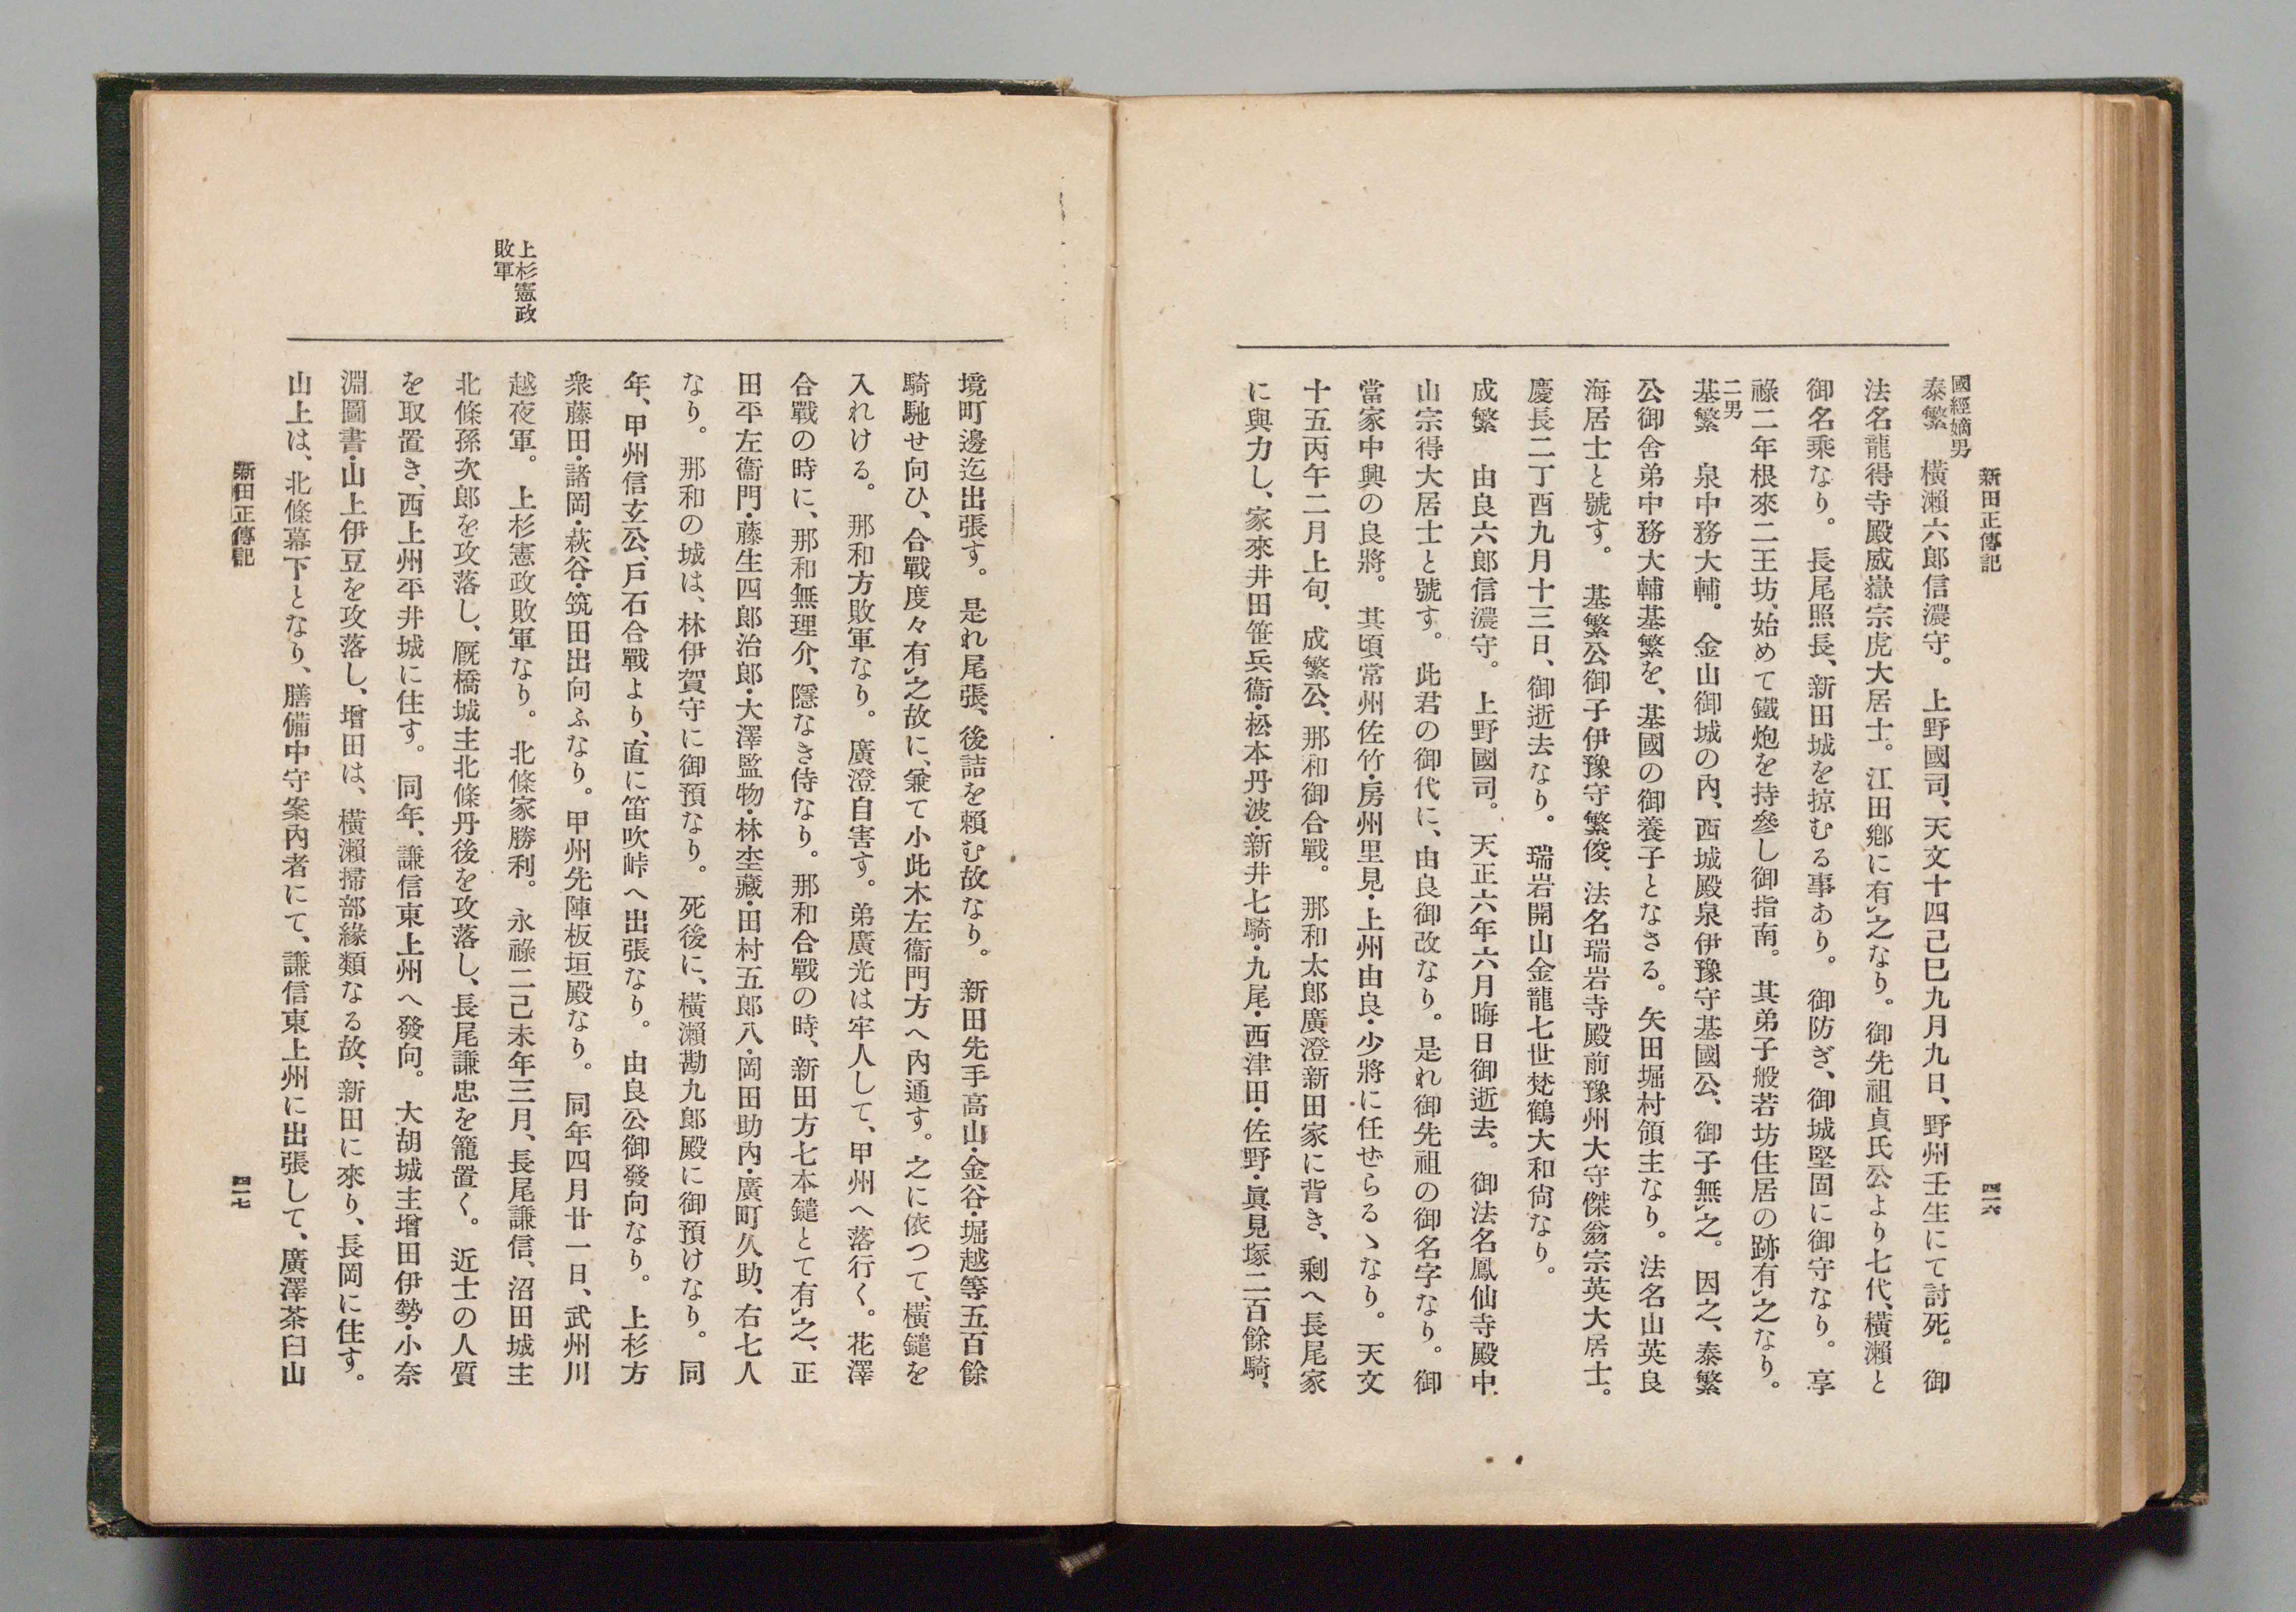 新田正傳記
四一六
國經嫡男
泰繁　橫瀨六郎信濃守。　上野國司、天文十四己巳九月九日、野州壬生にて討死。　御
法名龍得寺殿威嶽宗虎大居士。江田鄕に有㆑之なり。　御先祖貞氏公より七代、橫瀨と
御名乘なり。　長尾照長、新田城を掠むる事あり。　御防ぎ、御城堅固に御守なり。　享
祿二年根來二王坊、始めて鐵炮を持參し御指南。　其弟子般若坊住居の跡有㆑之なり。
二男
基繁　泉中務大輔。　金山御城の內、西城殿泉伊豫守基國公、御子無㆑之。　因之、泰繁
公御舍弟中務大輔基繁を、基國の御養子となさる。　矢田堀村領主なり。　法名山英良
海居士と號す。　基繁公御子伊豫守繁俊、法名瑞岩寺殿前豫州大守傑翁宗英大居士。
慶長二丁酉九月十三日、御逝去なり。　瑞岩開山金龍七世梵鶴大和尙なり。
成繁　由良六郎信濃守。　上野國司。　天正六年六月晦日御逝去。　御法名鳳仙寺殿中
山宗得大居士と號す。　此君の御代に、由良御改なり。　是れ御先祖の御名字なり。　御
當家中興の良將。　其頃常州佐竹・房州里見・上州由良・少將に任ぜらるゝなり。　天文
十五丙午二月上旬、成繁公、那和御合戰。　那和太郎廣澄新田家に背き、剩へ長尾家
に與力し、家來井田笹兵衞・松本丹波・新井七騎・九尾・西津田・佐野・眞見塚二百餘騎、
境町邊迄出張す。　是れ尾張、後詰を賴む故なり。　新田先手高山・金谷・堀越等五百餘
騎馳せ向ひ、合戰度々有㆑之故に、兼て小此木左衞門方へ內通す。　之に依つて、橫鑓を
入れける。　那和方敗軍なり。　廣澄自害す。　弟廣光は牢人して、甲州へ落行く。　花澤
合戰の時に、那和無理介、隱なき侍なり。　那和合戰の時、新田方七本鑓とて有㆑之、正
田平左衞門・藤生四郎治郎・大澤監物・林坒藏・田村五郎八・岡田助內・廣町久助、右七人
なり。　那和の城は、林伊賀守に御預なり。　死後に、橫瀨勘九郎殿に御預けなり。　同
年、甲州信玄公、戶石合戰より、直に笛吹峠へ出張なり。　由良公御發向なり。　上杉方
衆藤田・諸岡・萩谷・筑田出向ふなり。　甲州先陣板垣殿なり。　同年四月廿一日、武州川
上杉憲政
敗軍
越夜軍。　上杉憲政敗軍なり。　北條家勝利。　永祿二己未年三月、長尾謙信、沼田城主
北條孫次郎を攻落し、厩橋城主北條丹後を攻落し、長尾謙忠を籠置く。　近士の人質
を取置き、西上州平井城に住す。　同年、謙信東上州へ發向。　大胡城主增田伊勢・小奈
淵圖書・山上伊豆を攻落し、增田は、橫瀨掃部緣類なる故、新田に來り、長岡に住す。
山上は、北條幕下となり、膳備中守案內者にて、謙信東上州に出張して、廣澤茶臼山
新田正傳記
四一七